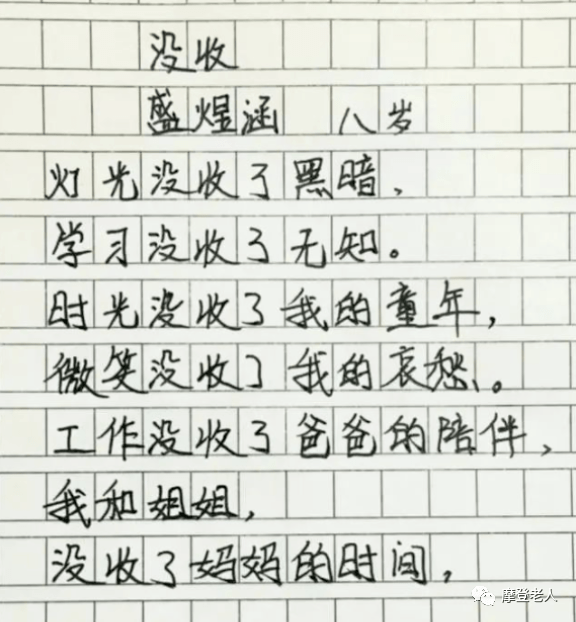 没收
盛煜涵 八岁
灯光没收了黑暗，
学习没收了无知。
时光没收了我的童年，
微笑没收了我的哀愁。
工作没收了爸爸的陪伴，
我和姐姐，
没收了妈妈的时间，
摩登老人